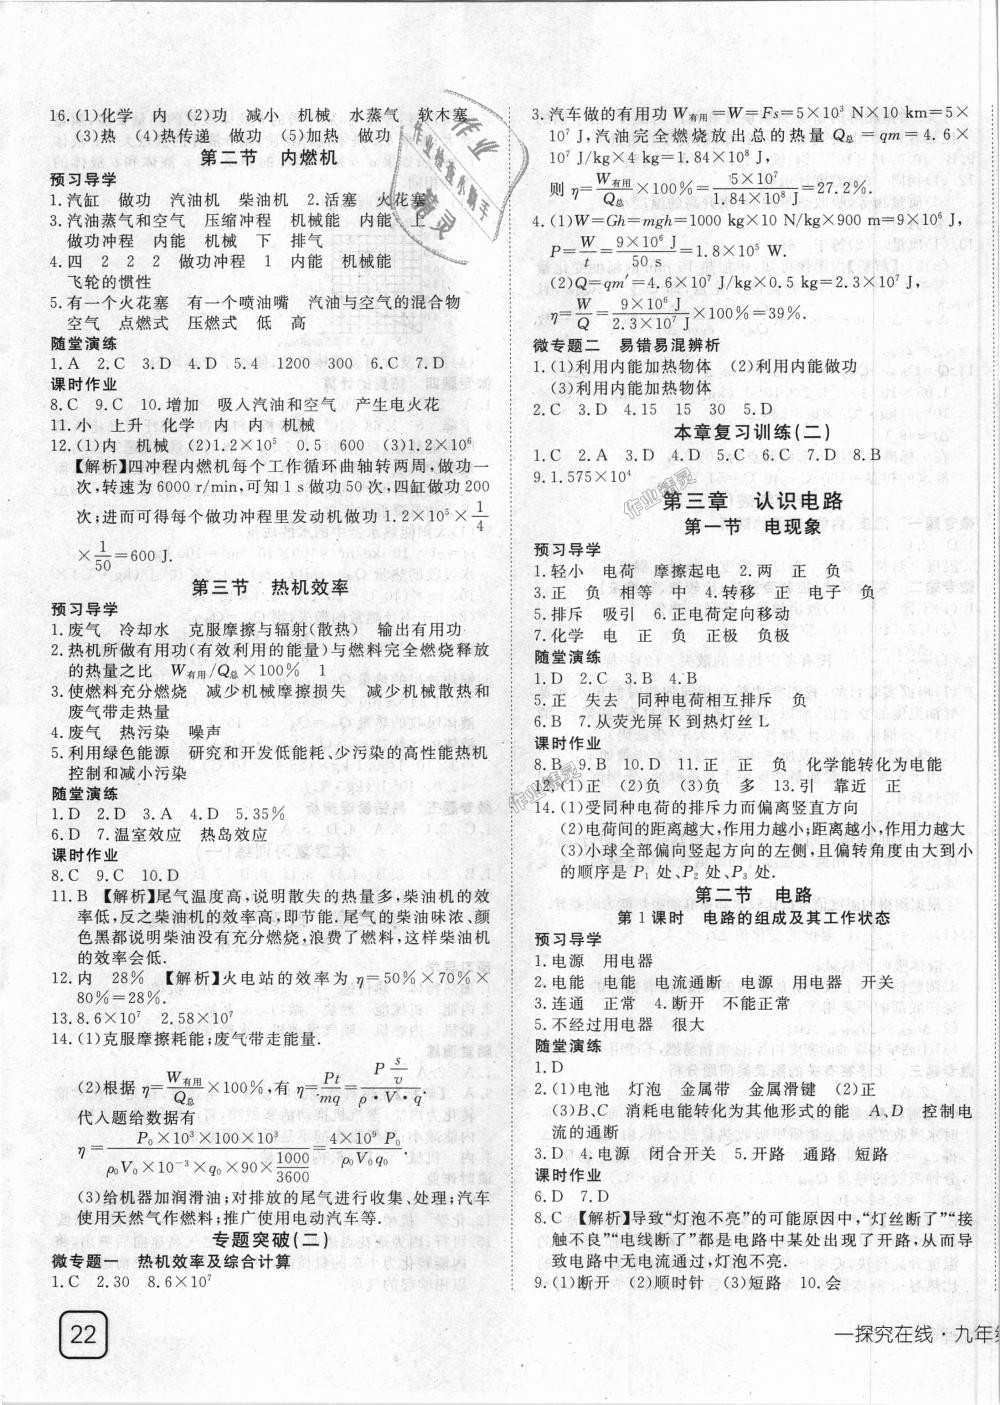 16.(1)化学 内 (2)功 减小 机械 水蒸气 软木塞
(3)热 (4)热传递 做功 (5)加热 做功
第二节 内燃机
预习导学
1.汽缸 做功 汽油机 柴油机 2.活塞 火花塞
3.汽油蒸气和空气 压缩冲程 机械能 内能 上
做功冲程 内能 机械 下 排气
4.四 2 2 2 做功冲程 1 内能 机械能
飞轮的惯性
5.有一个火花塞 有一个喷油嘴 汽油与空气的混合物
空气 点燃式 压燃式 低 高
随堂演练
1.A 2.C 3.D 4.D 5.4 1200 300 6.C 7.D
课时作业
8.C 9.C 10.增加 吸入汽油和空气 产生电火花
11.小 上升 化学 内 内 机械
12.(1)内 机械 (2)1.2×10⁵ 0.5 600 (3)1.2×10⁶
【解析】四冲程内燃机每个工作循环曲轴转两周,做功一
次,转速为6000 r/min,可知1 s做功50次,四缸做功200
次;进而可得每个做功冲程里发动机做功1.2×10⁵×1/4
×1/50=600 J.
第三节 热机效率
预习导学
1.废气 冷却水 克服摩擦与辐射(散热) 输出有用功
2.热机所做有用功(有效利用的能量)与燃料完全燃烧释放
的热量之比 W有用/Q总×100% 1
3.使燃料充分燃烧 减少机械摩擦损失 减少机械散热和
废气带走热量
4.废气 热污染 噪声
5.利用绿色能源 研究和开发低能耗、少污染的高性能热机
控制和减小污染
随堂演练
1.D 2.D 3.A 4.D 5.35%
6.D 7.温室效应 热岛效应
课时作业
8.C 9.C 10.D
11.B 【解析】尾气温度高,说明散失的热量多,柴油机的效
率低,反之柴油机的效率高,即节能.尾气的柴油味浓、颜
色黑都说明柴油没有充分燃烧,浪费了燃料,这样柴油机
的效率会低.
12.内 28% 【解析】火电站的效率为η=50%×70%×
80%=28%.
13.8.6×10⁷ 2.58×10⁷
14.(1)克服摩擦耗能;废气带走能量.
(2)根据η=W有用/Q总×100%,有η=Pt/mq=P(s/v)/(ρ·V·q).
代人题给数据有
η=(P₀×10³×100×10³)/(ρ₀V₀×10⁻³×q₀×90×1000/3600)=(4×10⁹ P₀)/(ρ₀V₀q₀).
(3)给机器加润滑油;对排放的尾气进行收集、处理;汽车
使用天然气作燃料;推广使用电动汽车等.
专题突破(二)
微专题一 热机效率及综合计算
1.C 2.30 8.6×10⁷
22
3.汽车做的有用功W有用=W=Fs=5×10³ N×10 km=5×
10⁷ J,汽油完全燃烧放出总的热量Q总=qm=4.6×
10⁷ J/kg×4 kg=1.84×10⁸ J,
则η=W有用/Q总×100%=(5×10⁷)/(1.84×10⁸ J)=27.2%.
4.(1)W=Gh=mgh=1000 kg×10 N/kg×900 m=9×10⁶ J,
P=W/t=(9×10⁶ J)/(50 s)=1.8×10⁵ W.
(2)Q=qm′=4.6×10⁷ J/kg×0.5 kg=2.3×10⁷ J,
η=W/Q=(9×10⁶ J)/(2.3×10⁷ J)×100%=39%.
微专题二 易错易混辨析
1.(1)利用内能加热物体 (2)利用内能做功
(3)利用内能加热物体
2.C 3.D 4.15 15 30 5.D
本章复习训练(二)
1.C 2.A 3.D 4.D 5.C 6.C 7.D 8.B
9.1.575×10⁴
第三章 认识电路
第一节 电现象
预习导学
1.轻小 电荷 摩擦起电 2.两 正 负
3.正 负 相等 中 4.转移 正 电子 负
5.排斥 吸引 6.正电荷定向移动
7.化学 电 正 负 正极 负极
随堂演练
1.D 2.C 3.B 4.B
5.正 失去 同种电荷相互排斥 负
6.B 7.从荧光屏K到热灯丝L
课时作业
8.B 9.B 10.D 11.正 正 负 化学能转化为电能
12.(1)正 (2)负 (3)负 多 13.引 靠近 正
14.(1)受同种电荷的排斥力而偏离竖直方向
(2)电荷间的距离越大,作用力越小;距离越小,作用力越大
(3)小球全部偏向竖起方向的左侧,且偏转角度由大到小
的顺序是P₁处、P₂处、P₃处.
第二节 电路
第1课时 电路的组成及其工作状态
预习导学
1.电源 用电器
2.电能 电能 电流通断 电源 用电器 开关
3.连通 正常 4.断开 不能正常
5.不经过用电器 很大
随堂演练
1.D
2.(1)电池 灯泡 金属带 金属滑键 (2)正
(3)B、C 消耗电能转化为其他形式的能 A、D 控制电
流的通断
3.C 4.电源 闭合开关 5.开路 通路 短路
课时作业
6.D 7.D
8.C 【解析】导致“灯泡不亮”的可能原因中,“灯丝断了”“接
触不良”“电线断了”都是电路中某处出现了开路,从而导
致电路中无电流通过,灯泡不亮.
9.(1)断开 (2)顺时针 (3)短路 10.会
一探究在线·九年级
作业
作业检查小帮手
精灵
作业精灵
作业精灵